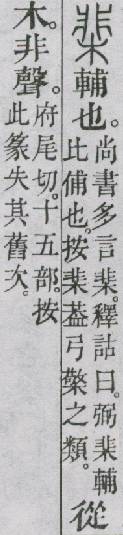 棐輔也。
尚書多言棐。釋詁曰。弼棐輔
比俌也。按棐葢弓檠之類。
從
木。非聲。
府尾切。十五部。按
此篆失其舊次。